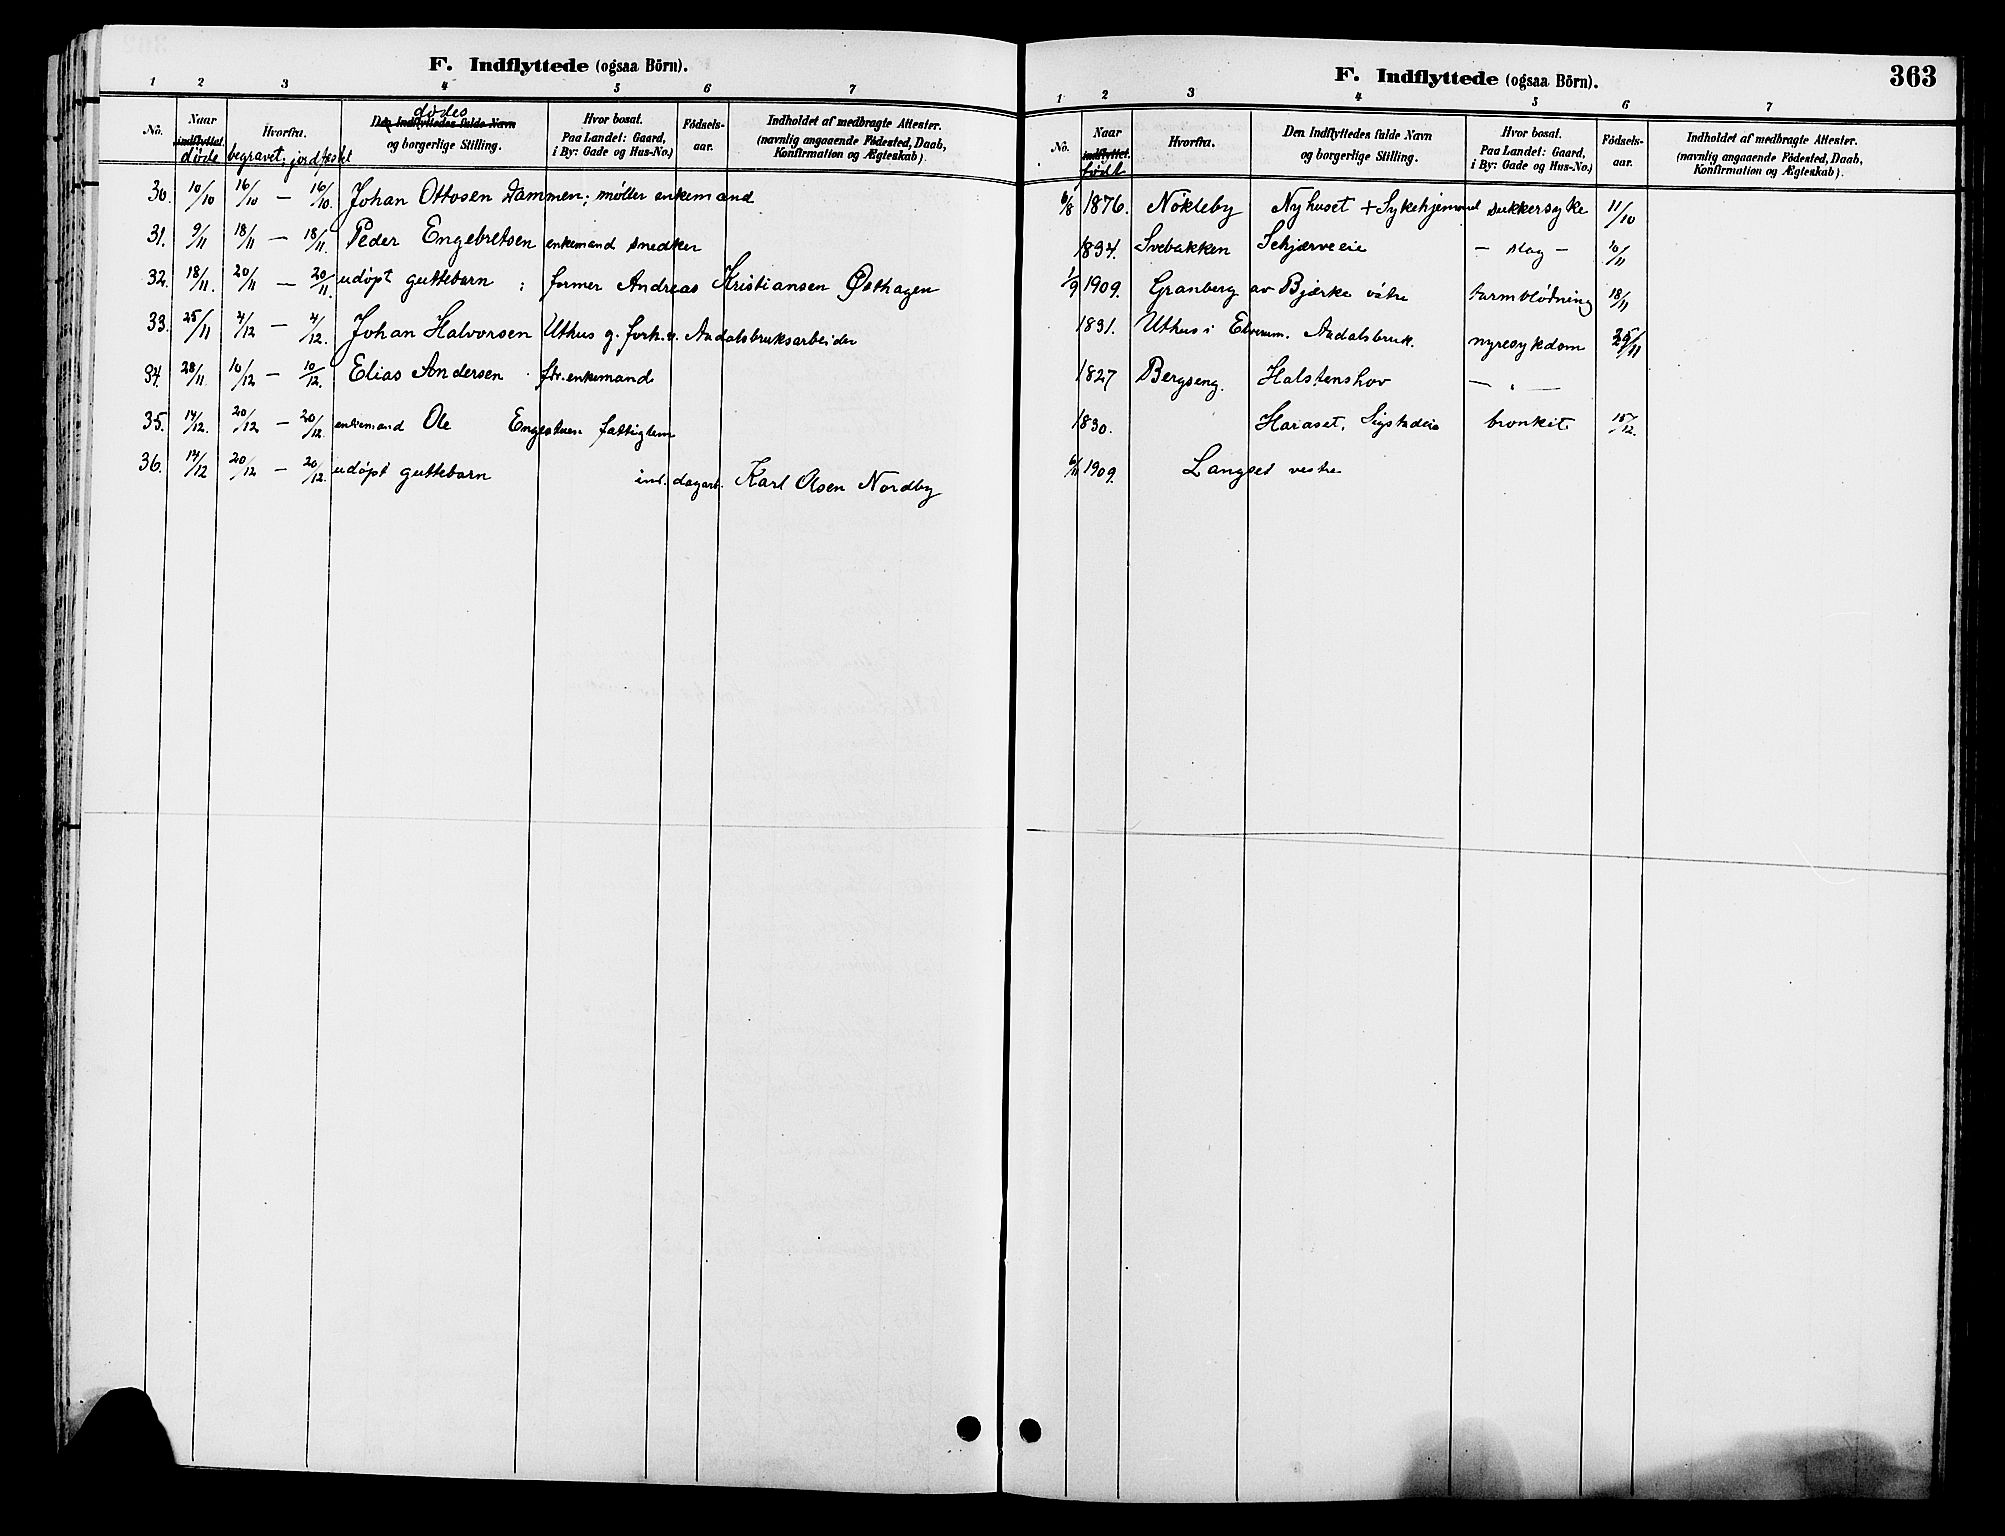 F. Indflyttede (ogsaa Börn).
1 2 3 4 5 6 7
No. Naar indflyttet. Hvorfra. Den Indflyttedes fulde Navn og borgerlige Stilling. Hvor bosat. Paa Landet: Gaard, i By: Gade og Hus-No.) Födsels-aar. Indholdet af medbragte Attester. (navnlig angaaende Födested, Daab, Konfirmation og Ægteskab).
døde begravet; jordfæstet dødes
30. 10/10 16/10 — 16/10. Johan Ottosen Dammen; møller enkemand
31. 9/11 18/11 — 18/11. Peder Engebretsen enkemand snedker
32. 18/11. 20/11 — 20/11. udøpt guttebarn : former Andreas Kristiansen Østhagen
33. 25/11 4/12 — 4/12. Johan Halvorsen Uthus g. forh.v. Aadalsbruksarbeider
34. 28/11. 10/12 — 10/12. Elias Andersen fhv. enkemand
35. 14/12. 20/12 — 20/12. enkemand Ole Engestuen fattiglem
36. 14/12 20/12 — 20/12. udøpt guttebarn ind. dagarb. Karl Olsen Nordby
F. Indflyttede (ogsaa Börn).
363
1 2 3 4 5 6 7
No. Naar indflyttet. Hvorfra. Den Indflyttedes fulde Navn og borgerlige Stilling. Hvor bosat. Paa Landet: Gaard, i By: Gade og Hus-No.) Födsels-aar. Indholdet af medbragte Attester. (navnlig angaaende Födested, Daab, Konfirmation og Ægteskab).
født
6/8 1876. Nökleby Nyhuset + Sykehjemmet sukkersyke 11/10
1834. Svebakken Schjærveeie — slag — 10/11
1/9 1909. Granberg av Bjærke våtre tarmblødning 18/11
1831. Uthus i Elverum. Aadalsbruk. nyresykdom 25/11
1827 Bergseng. Halstenshov — " —
1830. Haraset, Sigstadeie bronkit 15/12.
6/11 1909. Langset vestre